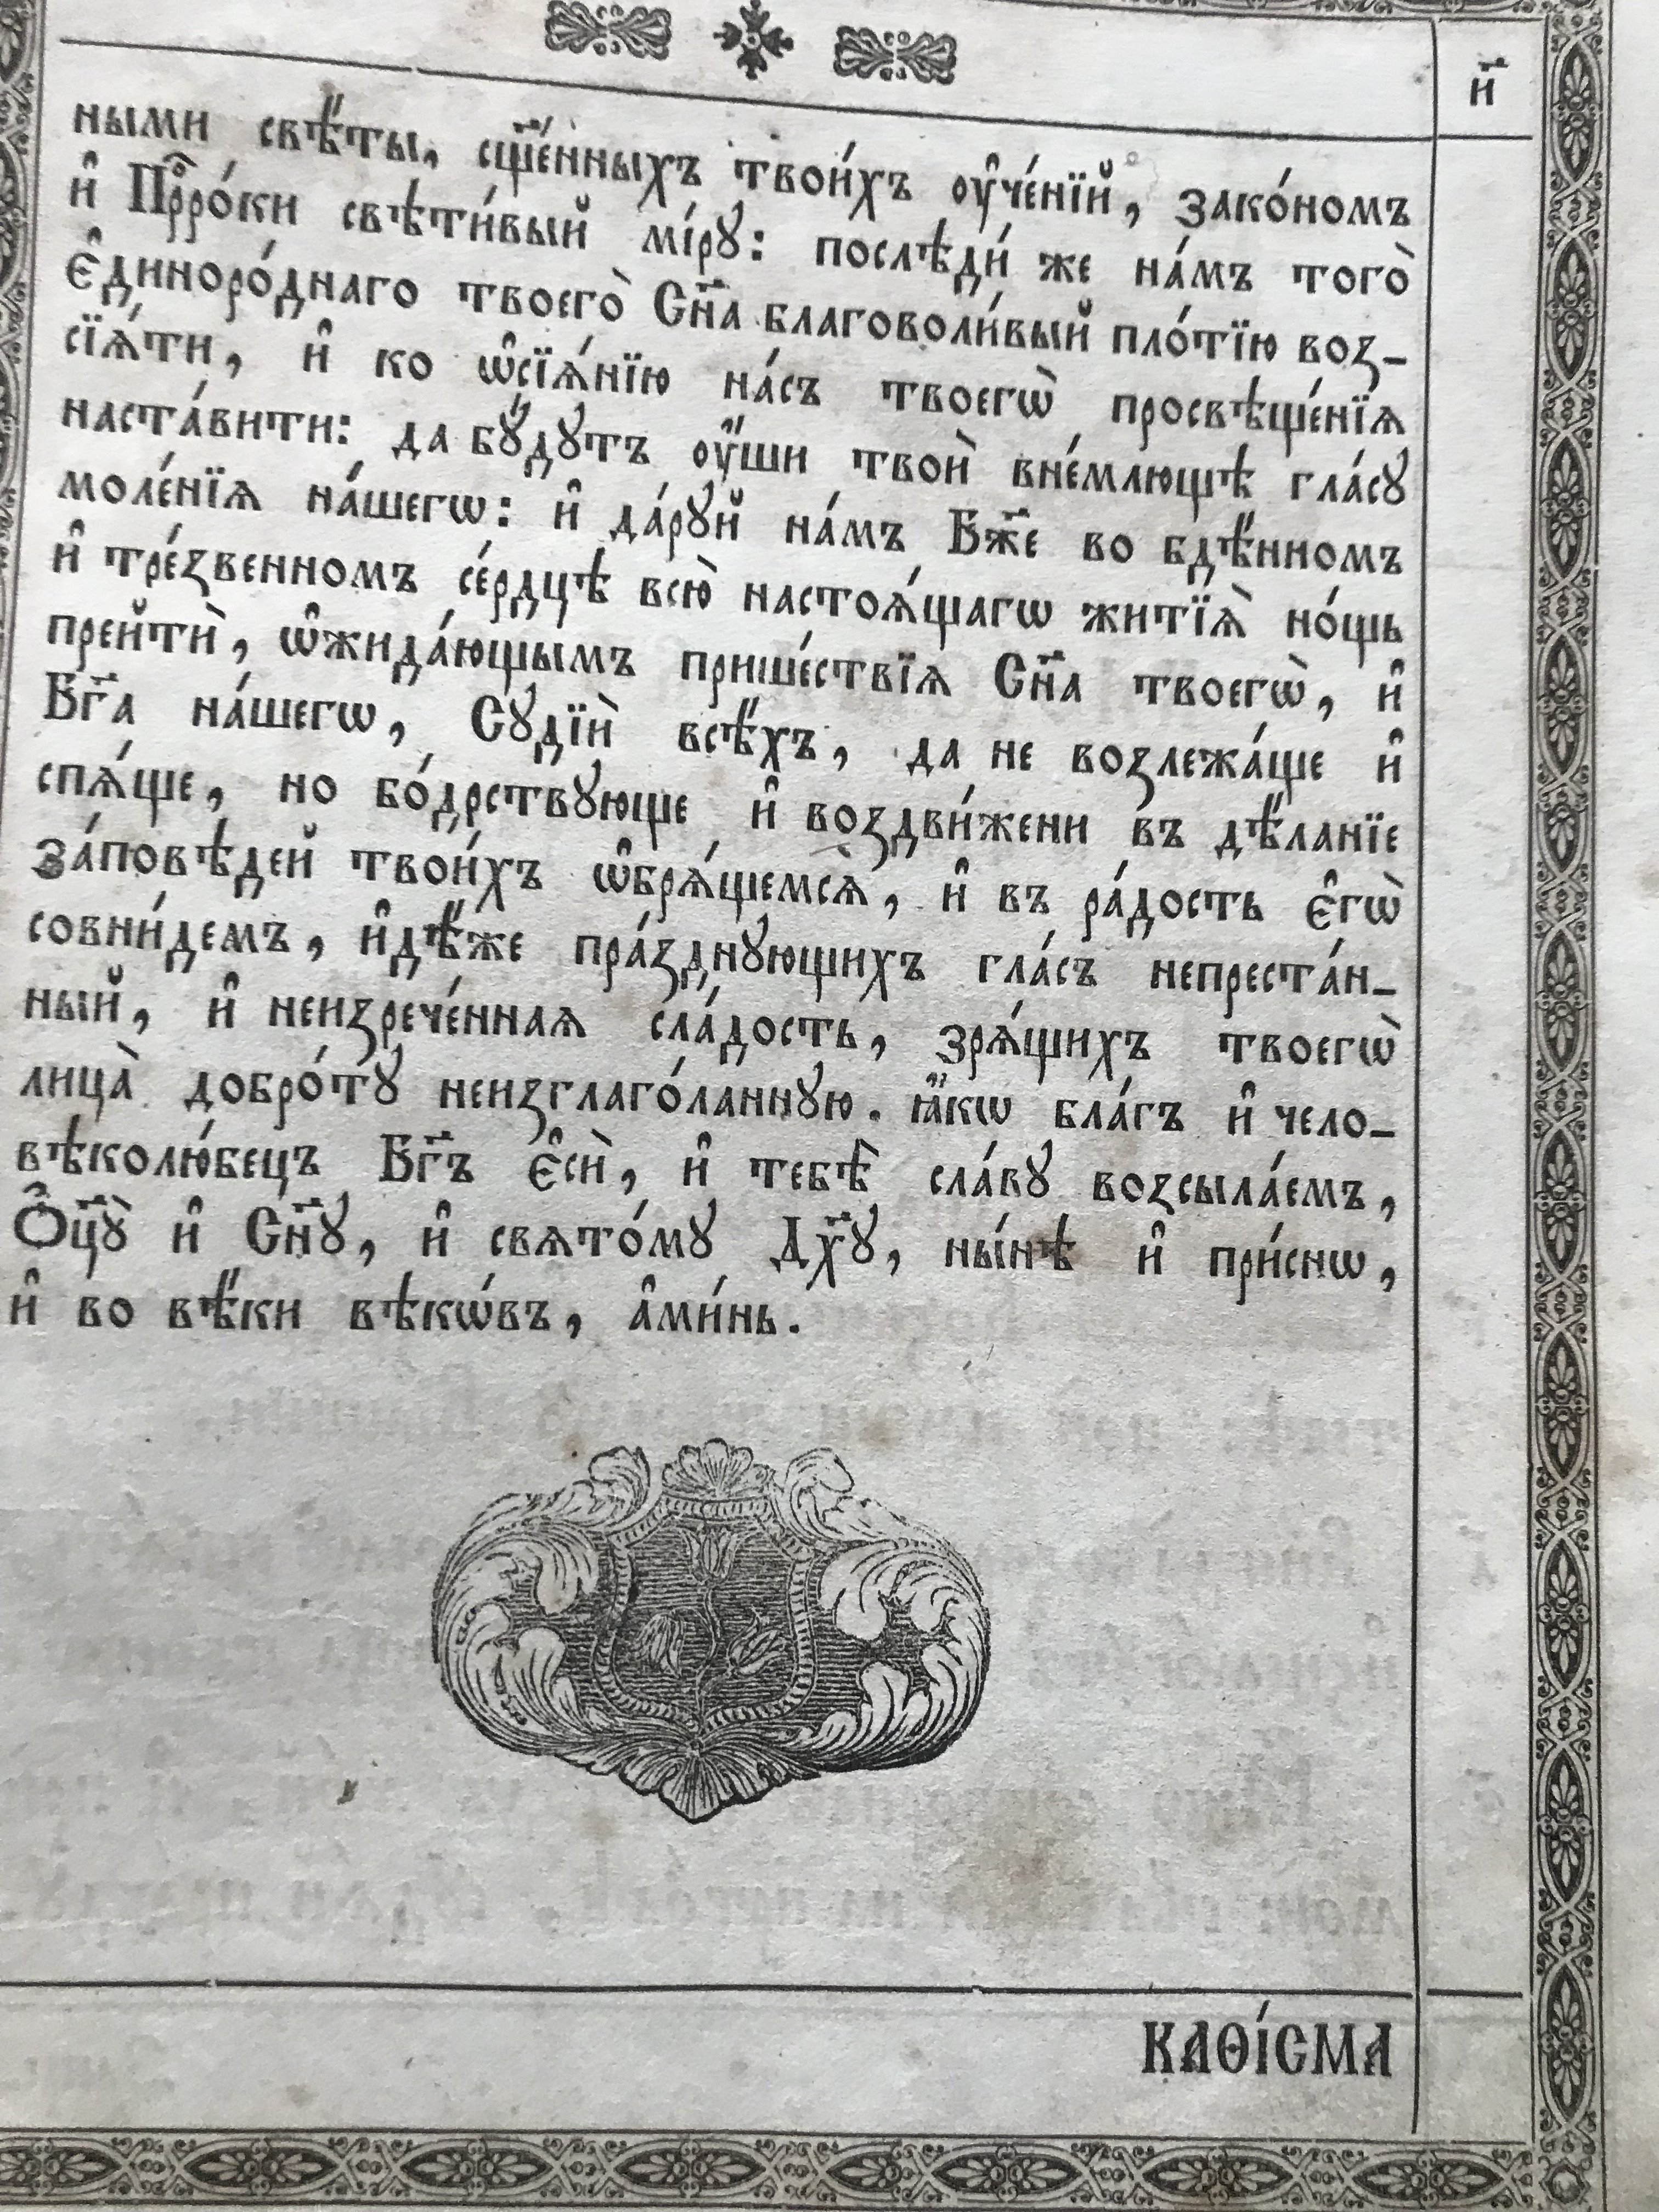 и҃
ными свѣ̈ты, сщ҃е́нныхъ твои́хъ оу҆че́нїй, зако́номъ
и҆ Прⷪ҇ро́ки свѣти́вый мі́рꙋ: послѣди́ же на́мъ того̀
є҆диноро́днаго твоего̀ Сн҃а благоволи́вый пло́тїю воз-
сїѧ́ти, и҆ ко ѡ҆сїѧ́нїю на́съ твоегѡ̀ просвѣще́нїѧ
наста́вити: да бꙋ́дꙋтъ оу҆́ши твоѝ вне́млющѣ гла́сꙋ
моле́нїѧ на́шегѡ: и҆ да́рꙋй на́мъ Бж҃е во бдѣ́нномъ
и҆ тре́звенномъ се́рдцѣ всю̀ настоѧ́щагѡ житїѧ̀ но́щь
прейтѝ, ѡ҆жида́ющымъ прише́ствїѧ Сн҃а твоегѡ̀, и҆
Бг҃а на́шегѡ, Сꙋдїѝ всѣ́хъ, да не возлежа́ще и҆
спѧ́ще, но бо́дрствꙋюще и҆ воздви́жени въ дѣ́ланїе
за́повѣдей твои́хъ ѡ҆брѧ́щемсѧ̀, и҆ въ ра́дость є҆гѡ̀
совни́демъ, и҆дѣ́же пра́зднꙋющихъ гла́съ непреста́н-
ный, и҆ неизрече́ннаѧ сла́дость, зрѧ́щихъ твоегѡ̀
лица̀ добро́тꙋ неизглаго́ланнꙋю. ꙗ҆́кѡ бла́гъ и҆ чело-
вѣколю́бецъ Бг҃ъ є҆сѝ, и҆ тебѣ̀ сла́вꙋ возсыла́емъ,
Ѻ҆ц҃ꙋ̀ и҆ Сн҃ꙋ, и҆ свѧто́мꙋ Дх҃ꙋ, ны́нѣ и҆ при́снѡ,
и҆ во вѣ́ки вѣкѡ́въ, а҆ми́нь.
КАѲІ́СМА